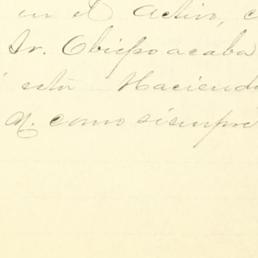 en el Activo, c
Sr. Obispo acaba
esta Haciend
q. como siempre